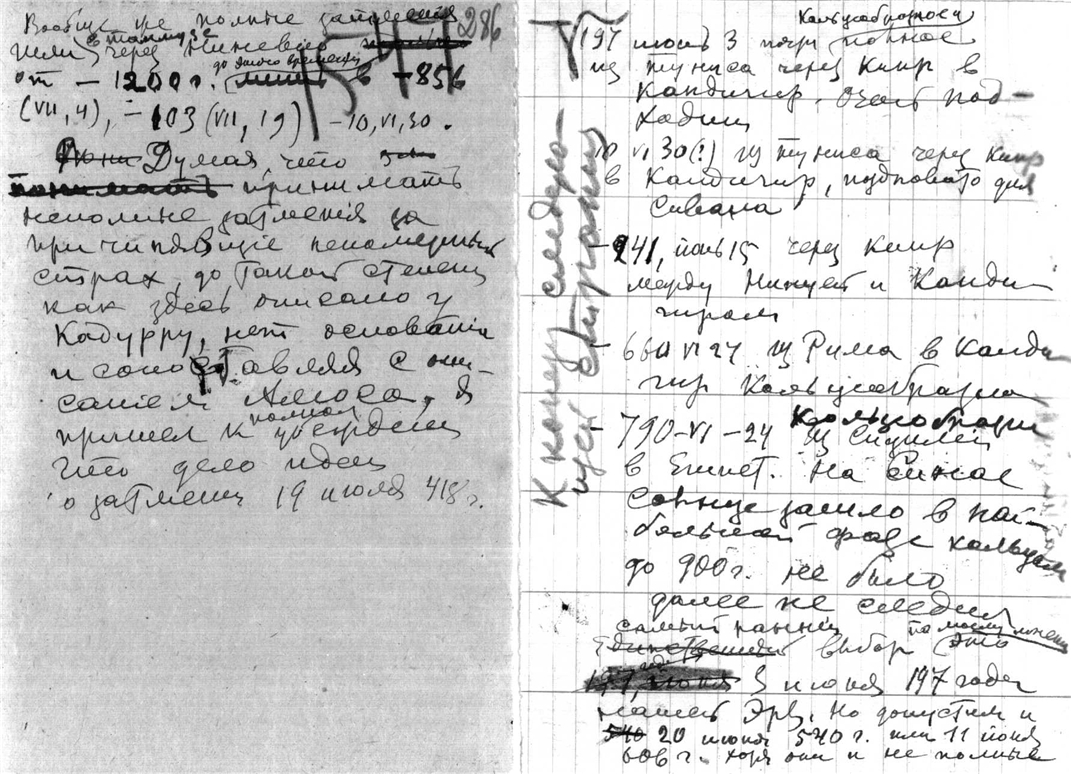 286
1577
Вообще же полные затмения
шли в Таммузе через Ниневию
от – 1200 г. до нашего времени в –856
(VII, 4), – 103 (VII, 19) – 10, VI, 30.
Думая, что
принимать
неполные затмения за
причинявшие непомерный
страх, до такой степени
как здесь описано у
Кадурру, нет основания
и сопоставляя с опи-
санием Амоса, я
пришел к полному убеждению
что дело идет
о затмении 19 июля 418 г.
К концу следую-
щей страницы
Кольцеобразное
197 июнь 3 почти полное
из Туниса через Каир в
Кандигир. Очень под-
ходит
10 VI 30(?) из Туниса через Каир
в Кандигир, поздновато для
Сивана
– 241, июнь 15 через Каир
между Нинует и Канди-
гиром
– 661 VI 27 из Рима в Канди
гир Кольцеобразно
– 790–VI–24 Кольцеобразн
из Сицилии
в Египет. На Синае
солнце зашло в наи-
большей фазе кольцом
до 900 г. не было
далее не следил
самый ранний по моему мнению
выбор это
3 июня 197 года
нашей Эры. Но допустим и
20 июня 540 г. или 11 июня
606 г. хотя они и не полные